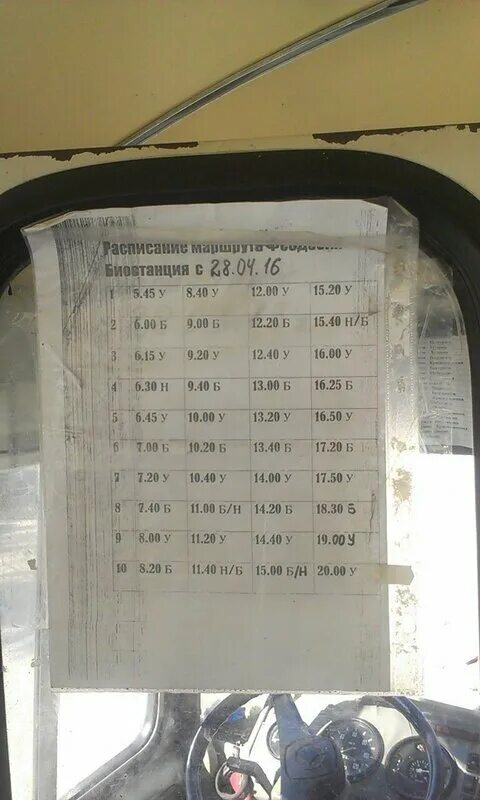 Расписание маршрута Феодосия
Биостанция с 28.04.16
1 5.45 У 8.40 У 12.00 У 15.20 У
2 6.00 Б 9.00 Б 12.20 Б 15.40 Н/Б
3 6.15 У 9.20 У 12.40 У 16.00 У
4 6.30 Н 9.40 Б 13.00 Б 16.25 Б
5 6.45 У 10.00 У 13.20 У 16.50 У
6 7.00 Б 10.20 Б 13.40 Б 17.20 Б
7 7.20 У 10.40 У 14.00 У 17.50 У
8 7.40 Б 11.00 Б/Н 14.20 Б 18.30 Б
9 8.00 У 11.20 У 14.40 У 19.00 У
10 8.20 Б 11.40 Н/Б 15.00 Б/Н 20.00 У